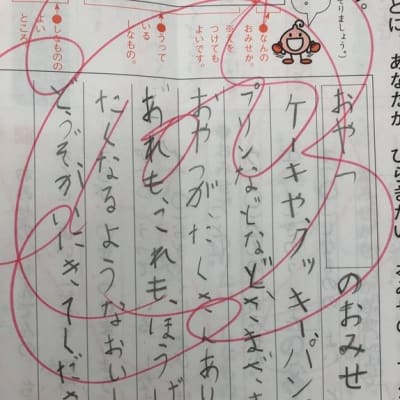 あなたが ひらきたい
なんの
おみせか。
つけても
よいです。
●うって
いる
しなもの。
●しなものの
よい
ところ
おやつ のおみせ
ケーキや、クッキーパン
プリンなどなど、さまざ
おやつが、たくさんあり
あれも、これも、ほうば
たくなるようなおいし
どうぞかいにきてくださ